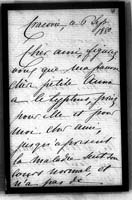 Cracovie, ce 6 Sept.
1880
Cher ami, figurez
vous que ma pauvre
chère petite Anna
a le typhus, priez
pour elle et pour
moi cher ami,
jusqu'à présent
la maladie suit son
cours normal, et
n'a pas de